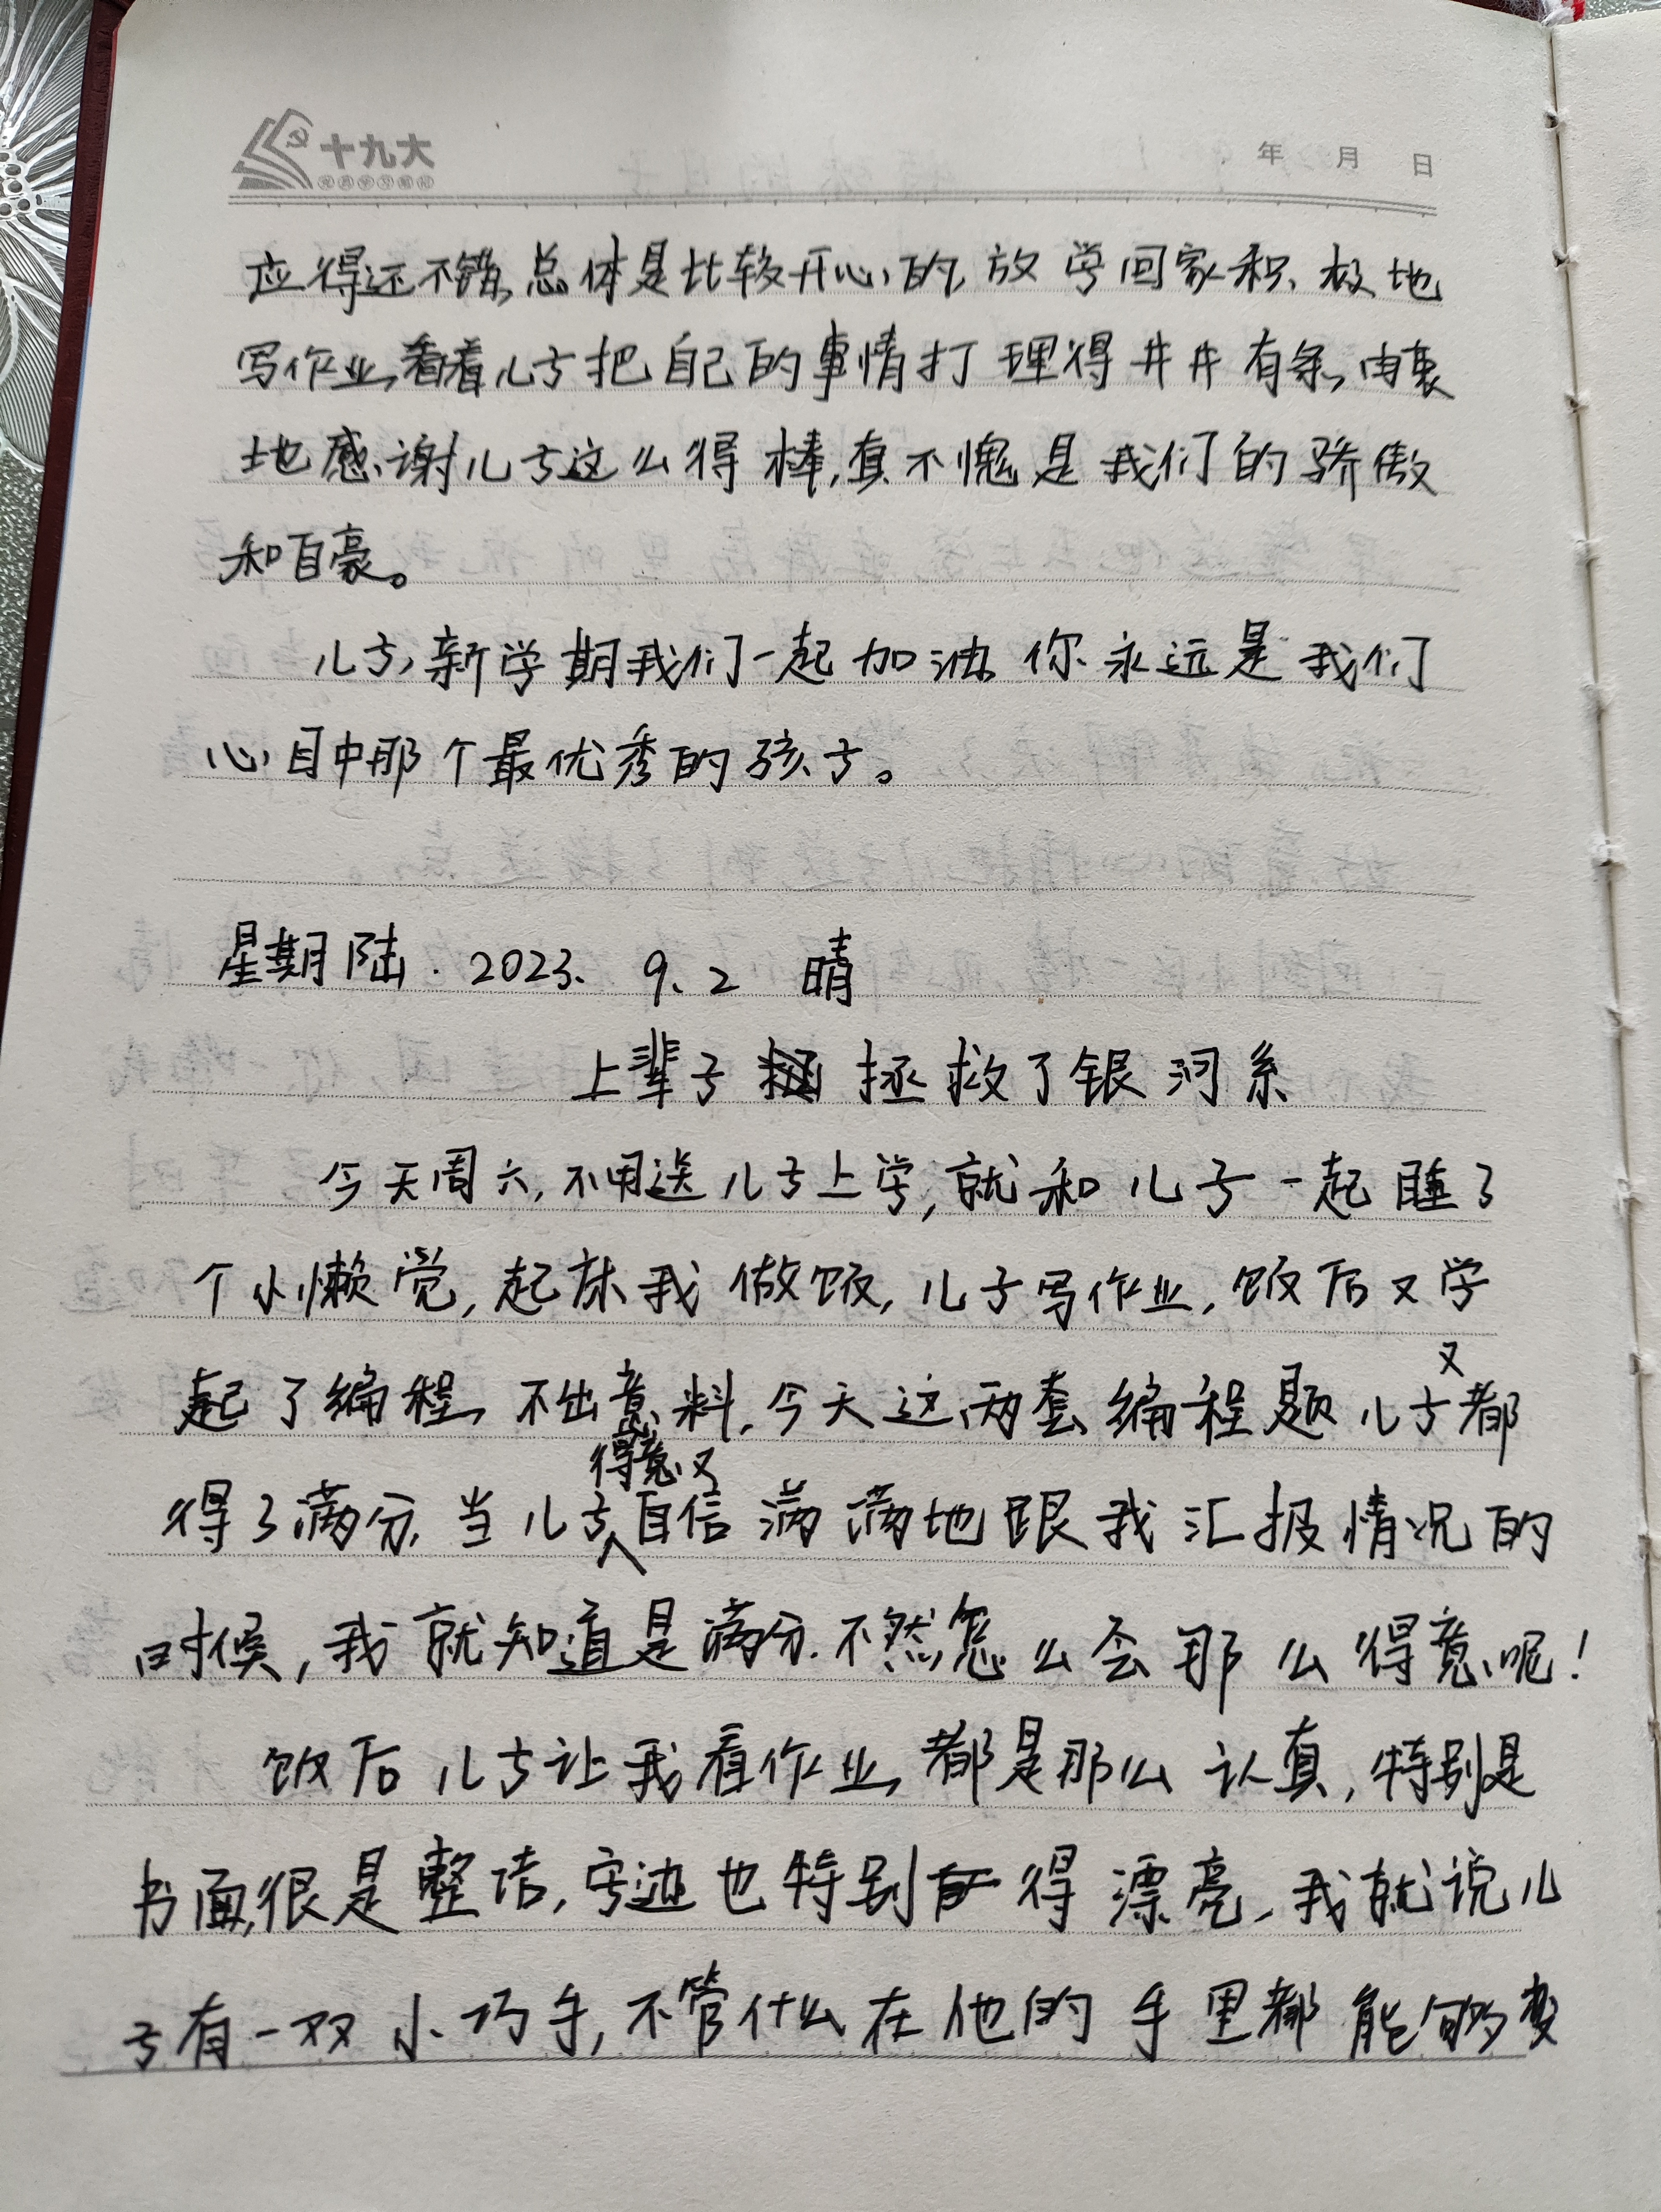 十九大
党员学习笔记
年 月 日
应得还不错,总体是比较开心的,放学回家积极地
写作业,看着儿子把自己的事情打理得井井有条,由衷
地感谢儿子这么得棒,真不愧是我们的骄傲
和自豪。
儿子,新学期我们一起加油,你永远是我们
心目中那个最优秀的孩子。
星期陆. 2023. 9.2 晴
上辈子 拯救了银河系
今天周六,不用送儿子上学,就和儿子一起睡了
个小懒觉,起床我做饭,儿子写作业,饭后又学
起了编程,不出意料,今天这两套编程题儿子又都
得了满分,当儿子得意又自信满满地跟我汇报情况的
时候,我就知道是满分.不然怎么会那么得意呢!
饭后儿子让我看作业,都是那么认真,特别是
书面很是整洁,字迹也特别得漂亮,我就说儿
子有一双小巧手,不管什么在他的手里都能够变